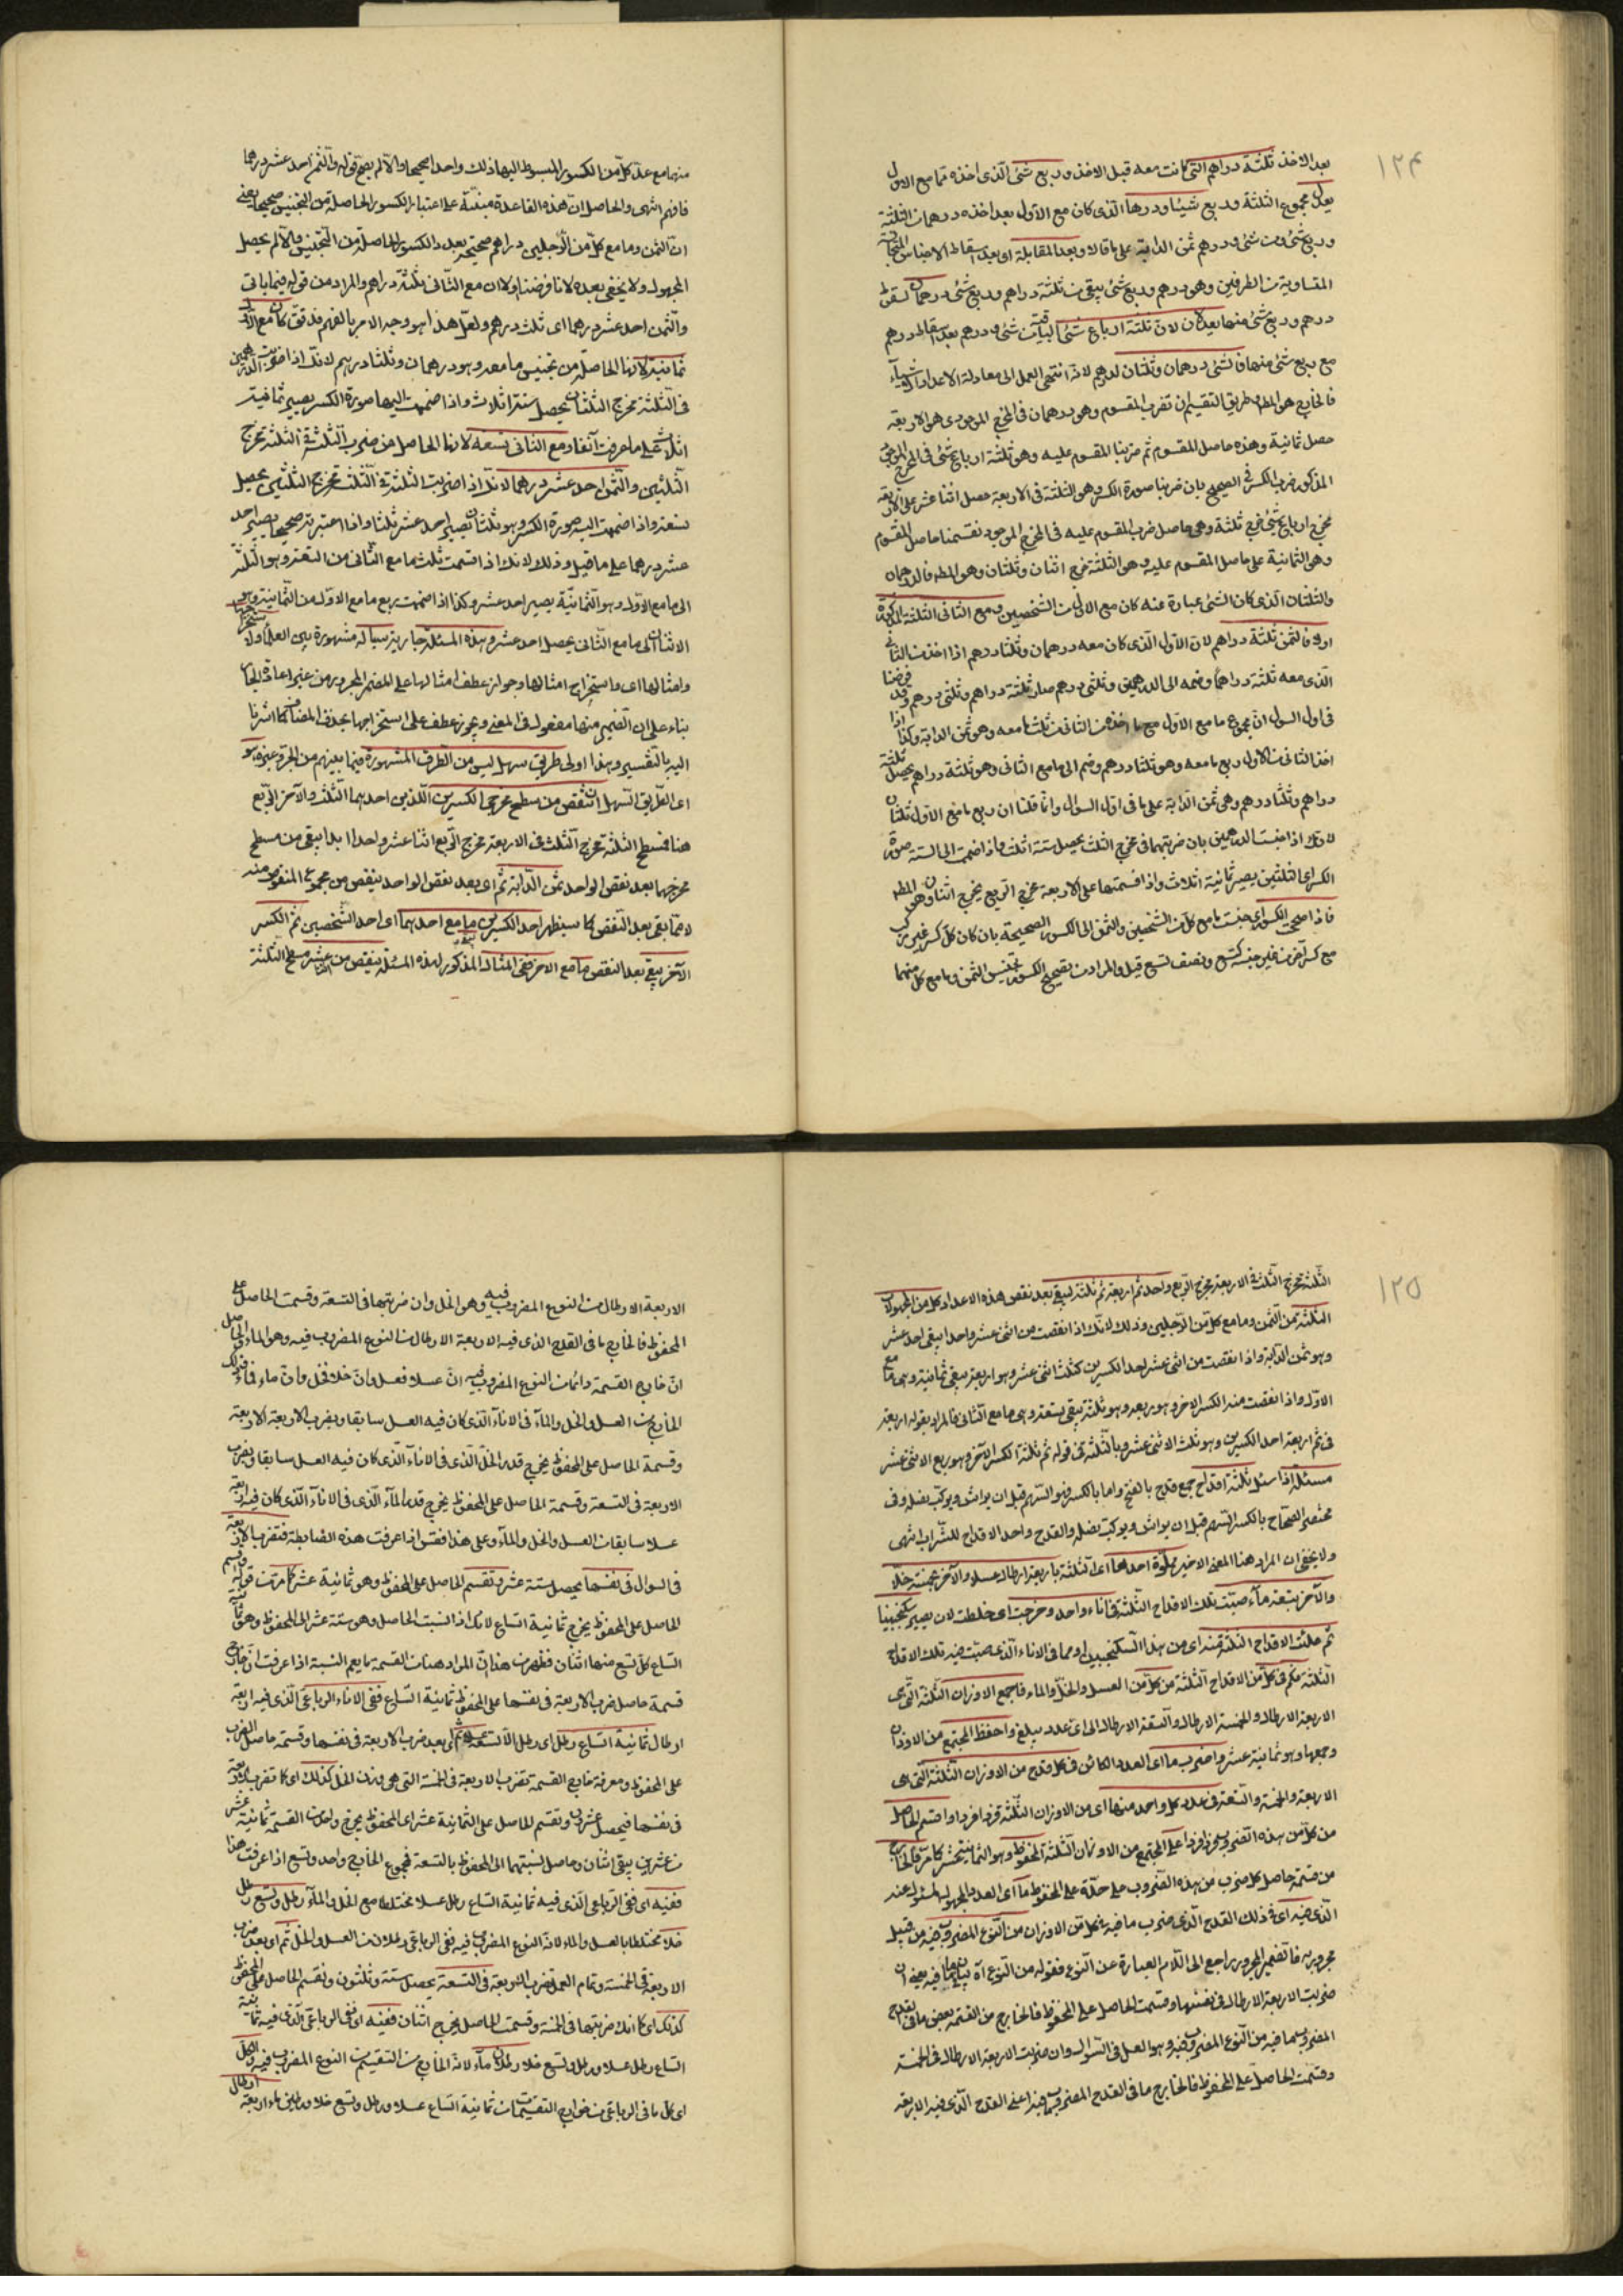 ١٢٤
بعد الاخذ ثلثة دراهم التى كانت معه قبل الاخذ وربع شئ الذى اخذه مما مع الاول
يعدل مجموع الثلثة وربع شئ شيئا ودرهما الذى كان مع الاول بعد اخذه درهما من الثلثة
وربع شئ من شئ ودرهم ثمن الدابة على ما قالا وبعد المقابلة اى بعد اسقاط الاجناس المتجانسة
المتساوية من الطرفين وهو درهم وربع شئ يبقى من ثلثة دراهم وربع شئ درهمان لسقوط
درهم وربع شئ منها يعدلان لان ثلثة ارباع شئ الباقية من شئ ودرهم بعد اسقاط درهم
مع ربع شئ منها فالشئ درهمان وثلثان لدرهم لانه انتهى العمل الى معادلة الاعداد اشياء
فالخارج هو المط طريق التقسيم ان تضرب المقسوم وهو درهمان فى المخرج الموجود هو الاربعة
حصل ثمانية وهذه حاصل المقسوم ثم ضربنا المقسوم عليه وهو ثلثة ارباع شئ فى المخرج الموجود
المذكور ضرب الكسر فى الصحيح بان ضربنا صورة الكسر وهو الثلثة فى الاربعة حصل اثنا عشر على الاربعة
مخرج ارباع شئ خرج ثلثة وهى حاصل ضرب المقسوم عليه فى المخرج الموجود فقسمنا حاصل المقسوم
وهى الثمانية على حاصل المقسوم عليه وهو الثلثة خرج اثنان وثلثان وهو المط فالدرهمان
والثلثان الذى كان الشئ عبارة عنه كان مع الاول من الشخصين ومع الثانى الثلثة المذكورة
اولا فالثمن ثلثة دراهم لان الاول الذى كان معه درهمان وثلثا درهم اذا اخذ من الثانى
الذى معه ثلثة دراهم وضمه الى الدرهمين وثلثى درهم صار ثلثة دراهم وثلثى درهم وقد فرضنا
فى اول السؤال ان مجموع ما مع الاول مع ما اخذه من الثانى من ثلث ما معه وهو ثمن الدابة وكذا اذا
اخذ الثانى من الاول ربع ما معه وهو ثلثا درهم وضم الى ما مع الثانى وهو ثلثة دراهم يحصل ثلثة
دراهم وثلثا درهم وهى ثمن الدابة على ما فى اول السؤال وانما قلنا ان ربع ما مع الاول ثلثان
لانك اذا جنست الدرهمين بان ضربتهما فى مخرج الثلث يحصل ستة اثلاث واذا ضممت الى الستة صورة
الكسر اى الثلثين يصير ثمانية اثلاث واذا قسمتها على الاربعة مخرج الربع يخرج اثنان وهو المط
فاذا صححت الكسور اى جنست ما مع كل من الشخصين والثمن الى الكسور الصحيحة بان كان كل كسر غير مركب
مع كسر آخر من غير جنسه كتسع ونصف تسع قيل والمراد من تصحيح الكسور تجنيس الثمن وما مع كل منهما
منها مع عد كل من الكسور المبسوط اليها ذلك واحدا صحيحا والا لم يصح قوله والثمن احد عشر درهما
فافهم انتهى والحاصل ان هذه القاعدة مبنية على اعتبار الكسور الحاصلة من التجنيس صحيحا يعنى
ان الثمن وما مع كل من الرجلين دراهم صحيحة بعدد الكسور الحاصلة من التجنيس والا لم يحصل
المجهول ولا يخفى بعده لانا فرضنا اولا ان مع الثانى ثلثة دراهم والمراد من قوله فيما ياتى
والثمن احد عشر درهما اى ثلث درهم ولعل هذا هو وجه الامر بالفهم فدقق كان مع الاول
ثمانية لانها الحاصلة من تجنيس ما معه وهو درهمان وثلثا درهم لانك اذا ضربت الدرهمين
فى الثلثة مخرج الثلثان يحصل ستة اثلاث واذا ضممت اليها صورة الكسر يصير ثمانية
اثلاث على ما عرفت آنفا ومع الثانى تسعة لانها الحاصل من ضرب الثلثة فى الثلثة مخرج
الثلثين والثمن احد عشر درهما لانك اذا ضربت الثلثة فى الثلثة مخرج الثلثين يحصل
تسعة واذا ضممت اليه صورة الكسر وهو ثلثان يصير احد عشر ثلثا واذا اعتبرته صحيحا يصير احد
عشر درهما على ما قيل وذلك لانك اذا قسمت ثلث ما مع الثانى من التسعة وهو الثلثة
الى ما مع الاول وهو الثمانية يصير احد عشر وكذا اذا ضممت ربع ما مع الاول من الثمانية وهو
الاثنان الى ما مع الثانى يحصل احد عشر وهذه المسئلة جارية سيالة مشهورة بين العلماء ولاستخراجها
وامثالها اى واستخراج امثالها وجواز عطف امثالها على المضمر المجرور من غير اعادة الجار
بناء على ان الضمير منها مفعول فى المعنى ويجوز عطف على استخراجها بحذف المضاف كما اشرنا
اليه بالتفسير وهذا اولى طريق سهل ليس من الطرق المشهورة فيما بينهم من الجبر وغيره وهو
اى الطريق السهل ان تنقص من مسطح مخرجى الكسرين اللذين احدهما الثلث والآخر الربع
هنا فمسطح الثلثة مخرج الثلث فى الاربعة مخرج الربع اثنا عشر واحدا ابدا يبقى من مسطح
مخرجها بعد نقص الواحد ثمن الدابة ثم اى بعد نقص الواحد ينقص من مجموع المنقوص منه
لا مما بقى بعد النقص كما سيظهر احد الكسرين يبقى ما مع احدهما اى احد الشخصين ثم الكسر
الآخر يبقى بعد النقص ما مع الاخر ففى المثال المذكور لهذه المسئلة ينقص من اثنا عشر مسطح الثلثة
١٢٥
الثلثة مخرج الثلث فى الاربعة مخرج الربع واحد ثم اربعة ثم ثلثة ليبقى بعد نقص هذه الاعداد كل من المجهولات
الثلثة من الثمن وما مع كل من الرجلين وذلك لانك اذا نقصت من اثنى عشر واحدا يبقى احد عشر
وهو ثمن الدابة واذا نقصت من اثنى عشر احد الكسرين كثلث اثنى عشر وهو اربعة يبقى ثمانية وهى ما مع
الاول واذا نقصت منه الكسر الاخر وهو ربعه وهو ثلثة يبقى تسعة وهى ما مع الثانى فالمراد بقوله اربعة
فى ثم اربعة احد الكسرين وهو ثلث الاثنى عشر وبالثلثة فى قوله ثم ثلثة الكسر الآخر وهو ربع الاثنى عشر
مسئلة اذا سئل ثلثة اقداح جمع قدح بالفتح واما بالكسر فهو السهم قبل ان يراش ويركب نصله وفى
مختصر الصحاح بالكسر السهم قبل ان يراش ويركب نصله والقدح واحد الاقداح للشراب انتهى
ولا يخفى ان المراد هنا المعنى الاخير مملوة احدها اى الثلثة باربعة ارطال عسلا والآخر بخمسة خلا
والآخر بتسعة ماء صبت تلك الاقداح الثلثة فى اناء واحد ومزجت اى خلطت لان يصير سكنجبينا
ثم ملئت الاقداح الثلثة منه اى من هذا السكنجبين او مما فى الاناء الذى صبت فيه تلك الاقداح
الثلثة فكم فى كل من الاقداح الثلثة من كل من العسل والخل والماء فاجمع الاوزان الثلثة التى هى
الاربعة الارطال والخمسة الارطال والتسعة الارطال الى اى عدد يبلغ واحفظ المجتمع من الاوزان
وجمعها وهو ثمانية عشر واضرب ما اى العدد الكائن فى كل قدح من الاوزان الثلثة التى هى
الاربعة والخمسة والتسعة فى عدد كل واحد منها اى من الاوزان الثلثة فردا فردا واقسم الحاصل
من كل من هذه الضروب فردا فردا على المجتمع من الاوزان الثلثة المحفوظ وهو الثمانية عشر كما مر فالخارج
من قسمة حاصل كل ضرب من هذه الضروب على حدة على المحفوظ ما اى العدد المجهول المسئول عنه
الذى فيه اى فى ذلك القدح الذى ضرب ما فيه فى كل من الاوزان من النوع المضروب فيه من قبيل
مجرور به فالضمير المجرور راجع الى اللام العبارة عن النوع فقوله من النوع آه بيان لما فيه يعنى ان
ضربت الاربعة الارطال فى نفسها وقسمت الحاصل على المحفوظ فالخارج من القسمة بعض ما فى قدح
المضروب ما فيه من النوع المضروب فيه وهو العسل فى السؤال وان ضربت الاربعة الارطال فى الخمسة
وقسمت الحاصل على المحفوظ فالخارج ما فى القدح المضروب ما فيه اعنى القدح الذى فيه الاربعة
الاربعة الارطال من النوع المضروب فيه وهو الخل وان ضربتها فى التسعة وقسمت الحاصل على
المحفوظ فالخارج ما فى القدح الذى فيه الاربعة الارطال من النوع المضروب فيه وهو الماء والحاصل
ان خارج القسمة دائما من النوع المضروب فيه ان عسلا فعسل وان خلا فخل وان ماء فماء فذلك
الخارج من العسل والخل والماء فى الاناء الذى كان فيه العسل سابقا وبضرب الاربعة الاربعة
وقسمة الحاصل على المحفوظ يخرج قدر الخل الذى فى الاناء الذى كان فيه العسل سابقا وبضرب
الاربعة فى التسعة وقسمة الحاصل على المحفوظ يخرج قدر الماء الذى فى الاناء الذى كان فيه اربعة
عسلا سابقا من العسل والخل والماء وعلى هذا فقس اذا عرفت هذه الضابطة فتضرب الاربعة
فى السؤال فى نفسها يحصل ستة عشر وتقسم الحاصل على المحفوظ وهو ثمانية عشر كما مر من قوله واقسم
الحاصل على المحفوظ يخرج ثمانية اتساع لانك اذا نسبت الحاصل وهو ستة عشر الى المحفوظ وهو ثمانية
اتساع كل تسع منها اثنان فظهر من هذا ان المراد هنا من القسمة ما يعم النسبة اذا عرفت ان خارج
قسمة حاصل ضرب الاربعة فى نفسها على المحفوظ ثمانية اتساع ففى الاناء الرباعى الذى فيه اربعة
ارطال ثمانية اتساع رطل اى رطل الا تسعه عسلا ثم اى بعد ضرب الاربعة فى نفسها وقسمة حاصل الضرب
على المحفوظ ومعرفة خارج القسمة تضرب الاربعة فى الخمسة التى هى وزن الخل كذلك اى كما تضرب الاربعة
فى نفسها فيحصل عشرون وتقسم الحاصل على الثمانية عشر اى المحفوظ يخرج واحد من القسمة ثمانية عشر
من عشرين يبقى اثنان وحاصل نسبتهما الى المحفوظ بالتسعة فمجموع الخارج واحد وتسع اذا عرفت هذا
ففيه اى ففى الرباعى الذى فيه ثمانية اتساع رطل عسلا مختلطا مع الخل والماء رطل وتسع رطل
خلا مختلطا بالعسل والماء لانه النوع المضروب فيه ففى الرباعى رطلان من العسل والخل ثم اى بعد ضرب
الاربعة فى الخمسة وتمام العمل تضرب الاربعة فى التسعة يحصل ستة وثلثون وتقسم الحاصل على المحفوظ
كذلك اى كما انك ضربتها فى الخمسة وقسمت الحاصل يخرج اثنان ففيه اى ففى الرباعى الذى فيه ثمانية
اتساع رطل عسلا ورطل وتسع خلا رطلان ماء لانه الخارج من التقسيم من النوع المضروب فيه والكل
اى كل ما فى الرباعى من خوارج التقسيمات من ثمانية اتساع عسلا ورطل وتسع خلا ورطلين ماء اربعة ارطال